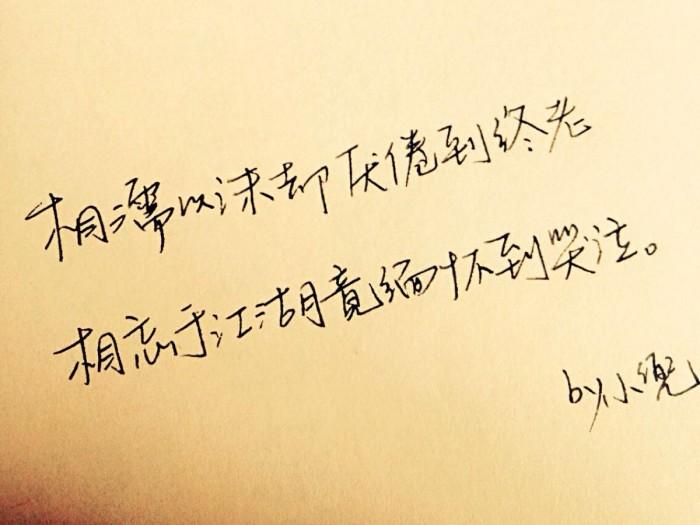 相濡以沫却厌倦到终老
相忘于江湖竟缅怀到哭泣。
by小兜